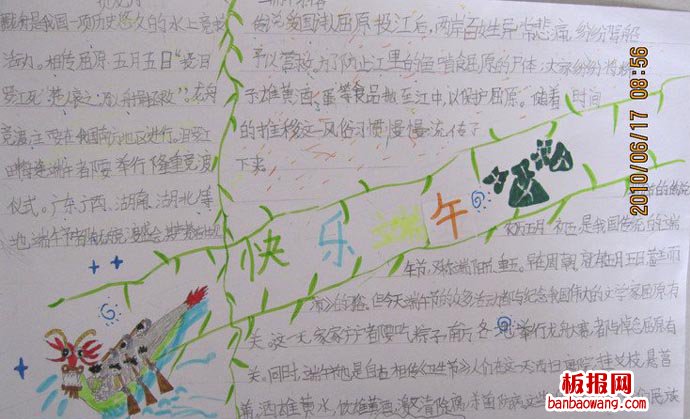 戬舟是我国一项历史悠久的水上竞技
活动。相传屈原五月五日"投汨
罗江死
竞渡主要在我国南方地区进行。
每逢端午者都要举行隆重竞渡
仪式。广东、广西、湖南、湖北等
地,端午节
我国诗人屈原投江后,两岸百姓异常悲痛,纷纷驾船
予以营救。为了防止江里的鱼啃食屈原的尸体,大家纷纷将粽
子雄黄酒、蛋等食品抛至江中,以保护屈原。随着时间
的推移这一风俗习惯慢慢流传了
下来。
快乐端午
五月初五是我国传统的端
午节,又称端阳、重五。早在周朝,就有五月五日蓄兰而
沐的习俗。但今天端午节的众多活动都与纪念我国伟大的文学家屈原有
关。这一天家家户户都要吃粽子,南方各地举行龙舟大赛,都与悼念屈原有
关。同时,端午节也是自古相传《卫生节》人们在这一天洒扫庭院,挂艾枝,悬菖
蒲,洒雄黄水,饮雄黄酒,激清除腐,杀菌防病
民族
2010/06/17 08:56
板报网
banbaowang.com